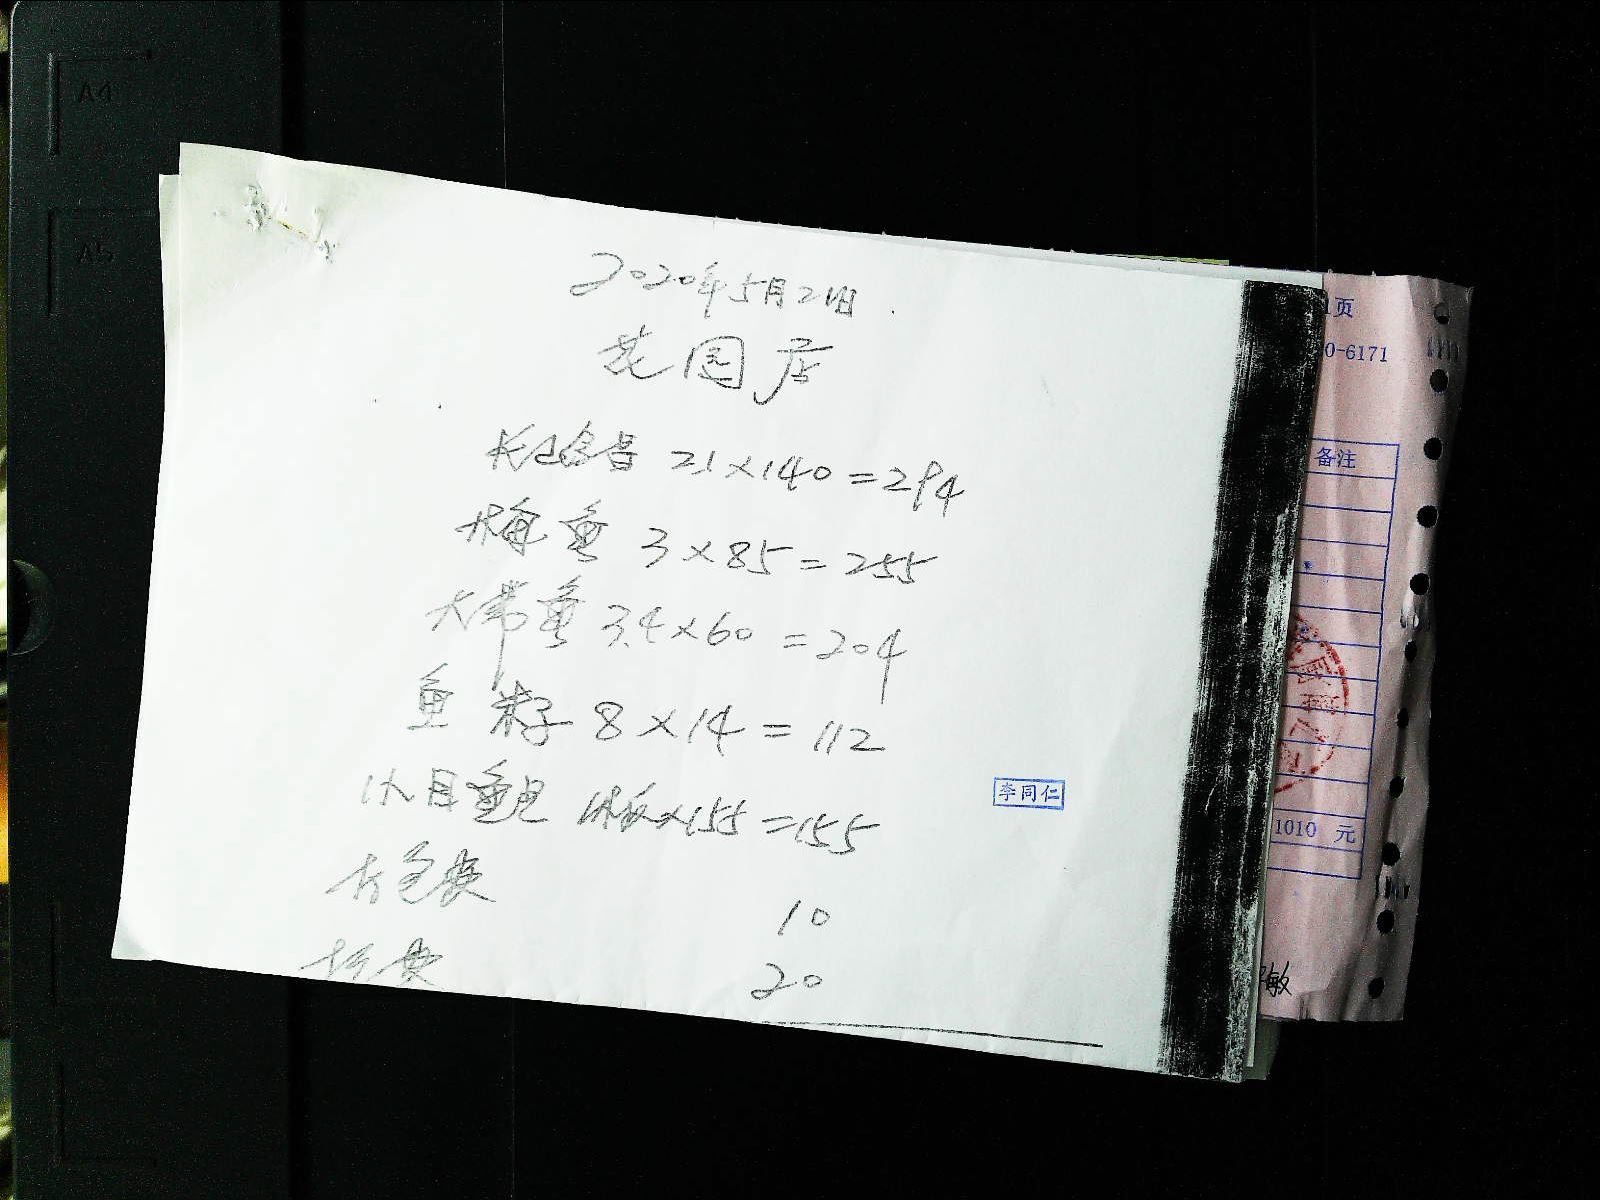 A4
A5
2020年5月21日
花园店
2.1×140=294
3×85=255
大带鱼 3.4×60=204
鱼 8×14=112
×155=155
打包费 10
20
李同仁
1页
0-6171
备注
1010 元
敏